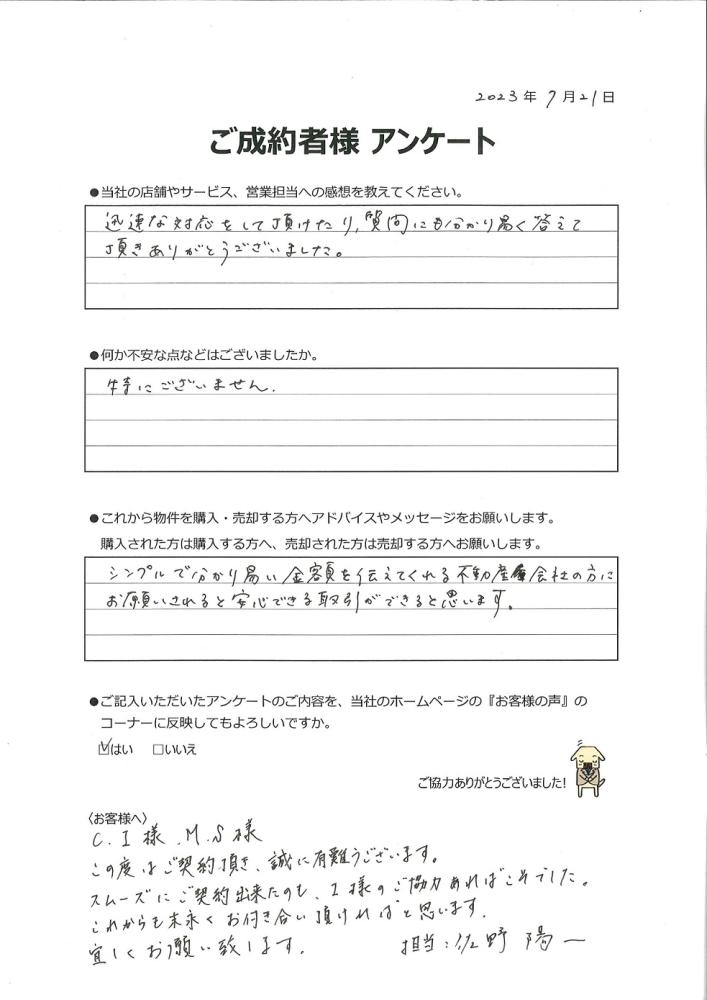 2023年 7月21日
ご成約者様 アンケート
●当社の店舗やサービス、営業担当への感想を教えてください。
迅速な対応をして頂けたり、質問にも分かり易く答えて
頂きありがとうございました。
●何か不安な点などはございましたか。
特にございません.
●これから物件を購入・売却する方へアドバイスやメッセージをお願いします。
購入された方は購入する方へ、売却された方は売却する方へお願いします。
シンプルで分かり易い金額を伝えてくれる不動産会社の方に
お願いされると安心できる取引ができると思います。
●ご記入いただいたアンケートのご内容を、当社のホームページの『お客様の声』の
コーナーに反映してもよろしいですか。
☑はい □いいえ
ご協力ありがとうございました!
〈お客様へ〉
C.I様.M.S様
この度はご契約頂き、誠に有難うございます。
スムーズにご契約出来たのも、I様のご協力あればこそでした。
これからも末永くお付き合い頂ければと思います.
宜しくお願い致します.
担当:佐野 陽一